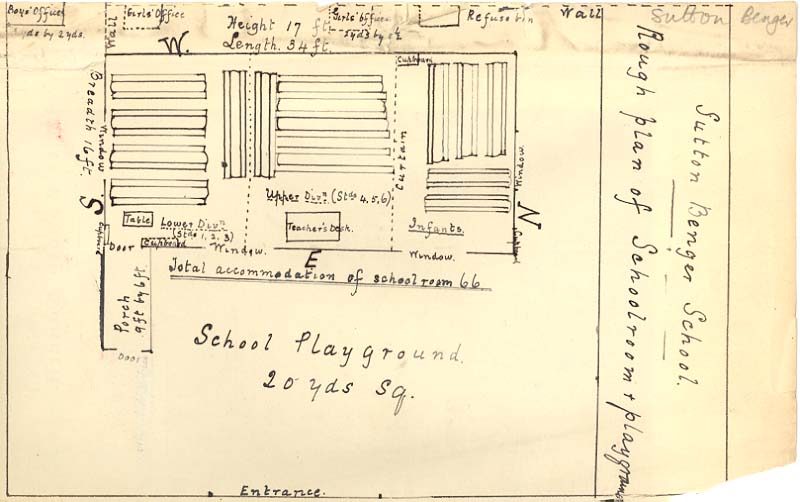 Boys' Office
yds by 2 yds.
Wall
Girls' Office
Height 17 ft.
Length. 34 ft.
Girls' Office
Refuse bin
Wall
Sutton Benger
W.
Breadth 16 ft.
Window
Cupboard
Curtain
Window.
S
N
Table
Lower Divn
(Stds 1, 2, 3)
Upper Divn (Stds 4, 5, 6)
Teacher's Desk.
Infants.
Door
Cupboard
Window.
E
Window.
Total accommodation of schoolroom 66
Porch
9ft by 6ft.
Door
School Playground.
20 yds sq.
Entrance.
Sutton Benger School.
Rough plan of Schoolroom + playground